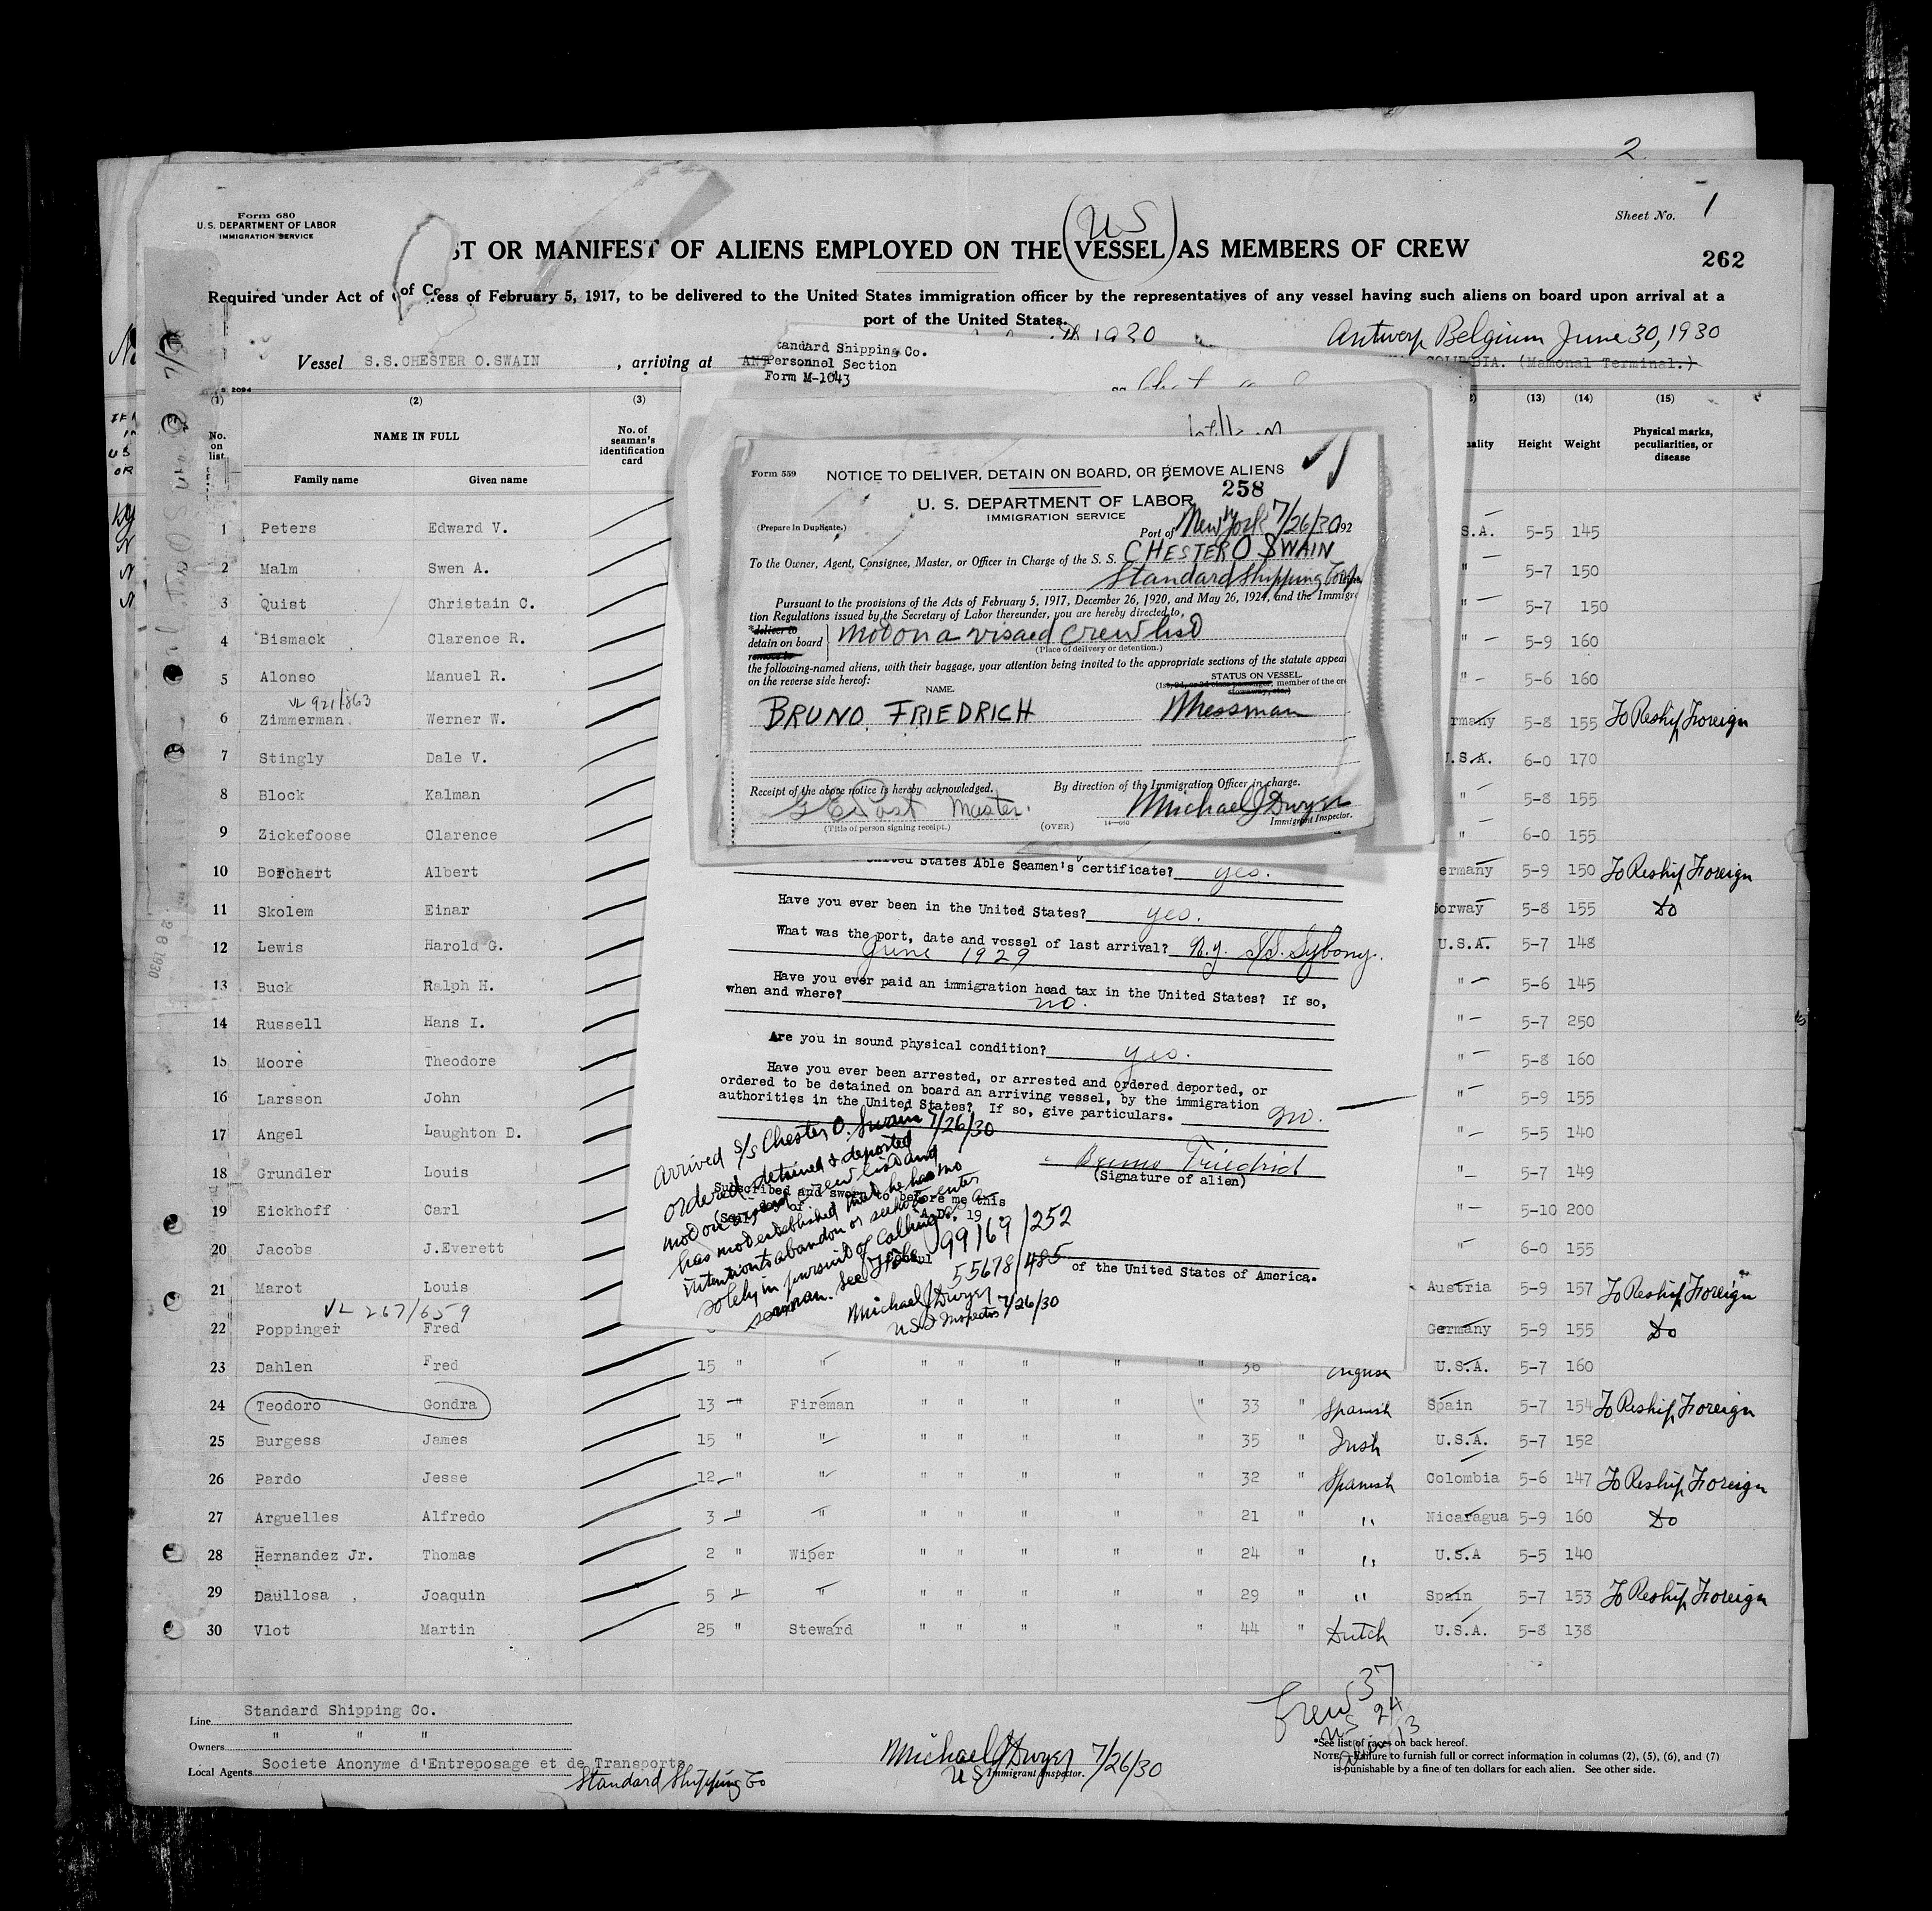 2
Form 680
U. S. DEPARTMENT OF LABOR
IMMIGRATION SERVICE
Sheet No. 1
US
ST OR MANIFEST OF ALIENS EMPLOYED ON THE VESSEL AS MEMBERS OF CREW
262
Required under Act of ress of February 5, 1917, to be delivered to the United States immigration officer by the representatives of any vessel having such aliens on board upon arrival at a
port of the United States.
Vessel S.S.CHESTER O.SWAIN , arriving at
1930
Antwerp Belgium June 30, 1930
(Mamonal Terminal.)
tandard Shipping Co.
Personnel Section
Form M-1043
(1) (2) (3) (13) (14) (15)
No. on list
NAME IN FULL
Family name Given name
No. of seaman's identification card
ality Height Weight Physical marks, peculiarities, or disease
1 Peters Edward V. S.A. 5-5 145
2 Malm Swen A. " 5-7 150
3 Quist Christain C. " 5-7 150
4 Bismack Clarence R. " 5-9 160
5 Alonso Manuel R. " 5-6 160
VL 921/863
6 Zimmerman Werner W. rmany 5-8 155 To Reship Foreign
7 Stingly Dale V. .S.A. 6-0 170
8 Block Kalman " 5-8 155
9 Zickefoose Clarence " 6-0 155
10 Borchert Albert ermany 5-9 150 To Reship Foreign
11 Skolem Einar orway 5-8 155 Do
12 Lewis Harold G. U.S.A. 5-7 148
13 Buck Ralph H. " 5-6 145
14 Russell Hans I. " 5-7 250
15 Moore Theodore " 5-8 160
16 Larsson John " 5-9 155
17 Angel Laughton D. " 5-5 140
18 Grundler Louis " 5-7 149
19 Eickhoff Carl " 5-10 200
20 Jacobs J.Everett " 6-0 155
21 Marot Louis Austria 5-9 157 To Reship Foreign
VL 267/659
22 Poppinger Fred Germany 5-9 155 Do
23 Dahlen Fred 15 " " " " " " " 36 U.S.A. 5-7 160
24 Teodoro Gondra 13 " Fireman " " " " " 33 " Spanish Spain 5-7 154 To Reship Foreign
25 Burgess James 15 " " " " " " " 35 " Irish U.S.A. 5-7 152
26 Pardo Jesse 12 " " " " " " " 32 " Spanish Colombia 5-6 147 To Reship Foreign
27 Arguelles Alfredo 3 " " " " " " " 21 " " Nicaragua 5-9 160 Do
28 Hernandez Jr. Thomas 2 " Wiper " " " " " 24 " " U.S.A 5-5 140
29 Daullosa Joaquin 5 " " " " " " " 29 " " Spain 5-7 153 To Reship Foreign
30 Vlot Martin 25 " Steward " " " " " 44 " Dutch U.S.A. 5-8 138
Form 559 NOTICE TO DELIVER, DETAIN ON BOARD, OR REMOVE ALIENS
258
U. S. DEPARTMENT OF LABOR
IMMIGRATION SERVICE
(Prepare in Duplicate.) Port of New York 7/26/30 192
To the Owner, Agent, Consignee, Master, or Officer in Charge of the S. S. CHESTER O SWAIN
Standard Shipping Co
Pursuant to the provisions of the Acts of February 5, 1917, December 26, 1920, and May 26, 1924, and the Immigra
tion Regulations issued by the Secretary of Labor thereunder, you are hereby directed to,
*deliver to
detain on board
remove to
mod on a visaed crew list
(Place of delivery or detention.)
the following-named aliens, with their baggage, your attention being invited to the appropriate sections of the statute appear
on the reverse side hereof:
NAME. STATUS ON VESSEL.
member of the cr
BRUNO FRIEDRICH Messman
Receipt of the above notice is hereby acknowledged. By direction of the Immigration Officer in charge.
G E Post Master. Michael J Dwyer
(Title of person signing receipt.) (OVER) Immigrant Inspector.
United States Able Seamen's certificate? yes.
Have you ever been in the United States? yes.
What was the port, date and vessel of last arrival? N.Y. S/S. Sybony.
June 1929
Have you ever paid an immigration head tax in the United States? If so,
when and where? no.
Are you in sound physical condition? yes.
Have you ever been arrested, or arrested and ordered deported, or
ordered to be detained on board an arriving vessel, by the immigration
authorities in the United States? If so, give particulars. no.
Bruno Friedrich
(Signature of alien)
Subscribed and sworn to before me this
A.D. 19
of the United States of America.
Arrived S/S Chester O. Swain 7/26/30
ordered detained & deported
mod on a visaed crew list and
has not established that he has no
intention to abandon or seek to enter a
solely in pursuit of calling as
seaman. See files 99169/252
55678/485
Michael J Dwyer
US I Inspector 7/26/30
Crew 37
US 24
13
Line Standard Shipping Co.
Owners " " "
Local Agents Societe Anonyme d'Entreposage et de Transports
Standard Shipping Co
Michael J Dwyer 7/26/30
US Immigrant Inspector.
*See list of races on back hereof.
NOTE.—Failure to furnish full or correct information in columns (2), (5), (6), and (7)
is punishable by a fine of ten dollars for each alien. See other side.